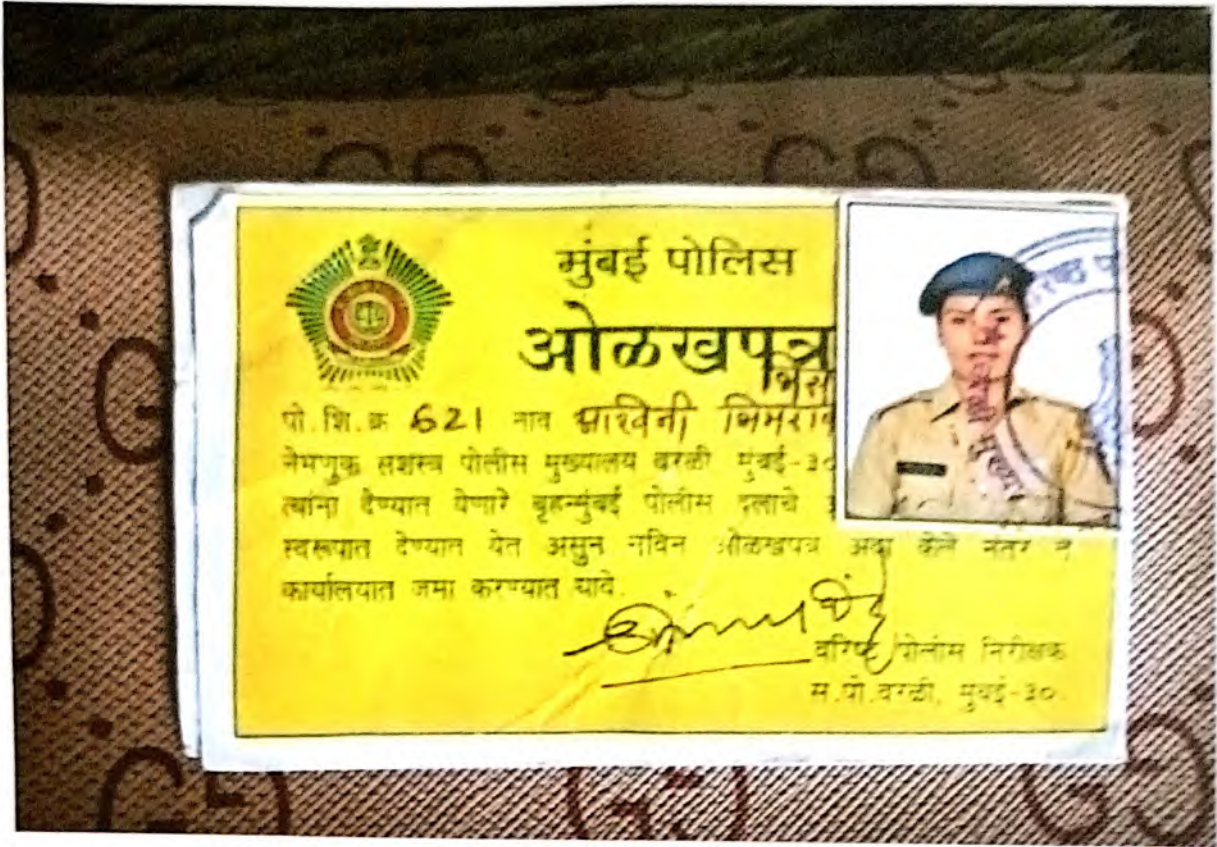 मुंबई पोलिस
ओळखपत्र
पो.शि.क्र 621 नाव
नेमणुक सशस्त्र पोलीस मुख्यालय वरळी मुंबई-३०
त्यांना देण्यात येणारे बृहन्मुंबई पोलीस दलाचे
स्वरूपात देण्यात येत असुन नविन ओळखपत्र अदा केले नंतर
कार्यालयात जमा करण्यात यावे.
वरिष्ठ पोलीस निरीक्षक
स.पो.वरळी, मुंबई-३०.